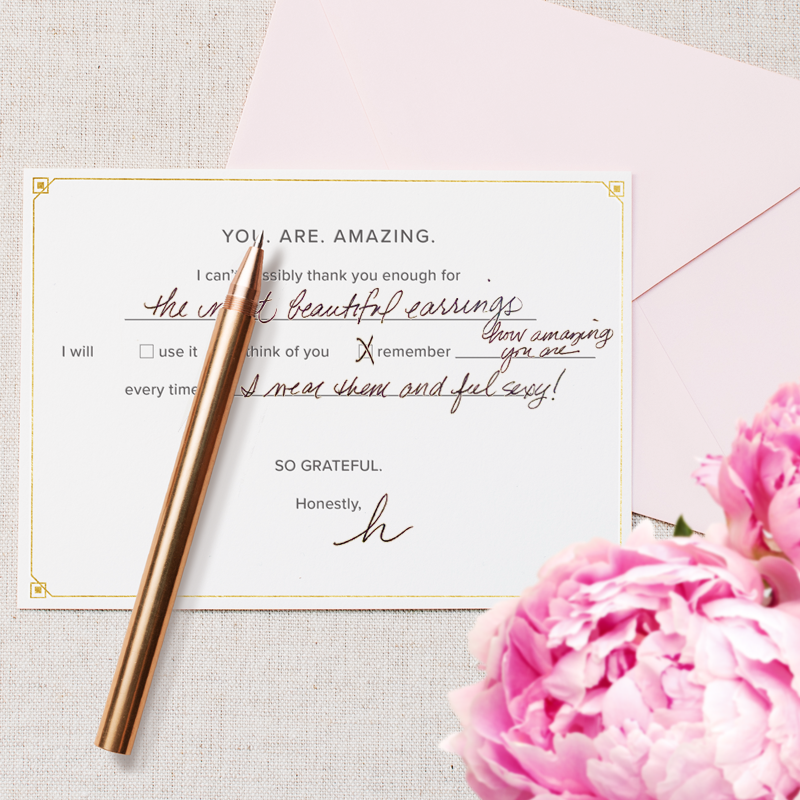 YOU. ARE. AMAZING.
I can't possibly thank you enough for
the most beautiful earrings
how amazing
I will use it think of you X remember you are
every time I wear them and feel sexy!
SO GRATEFUL.
Honestly,
h